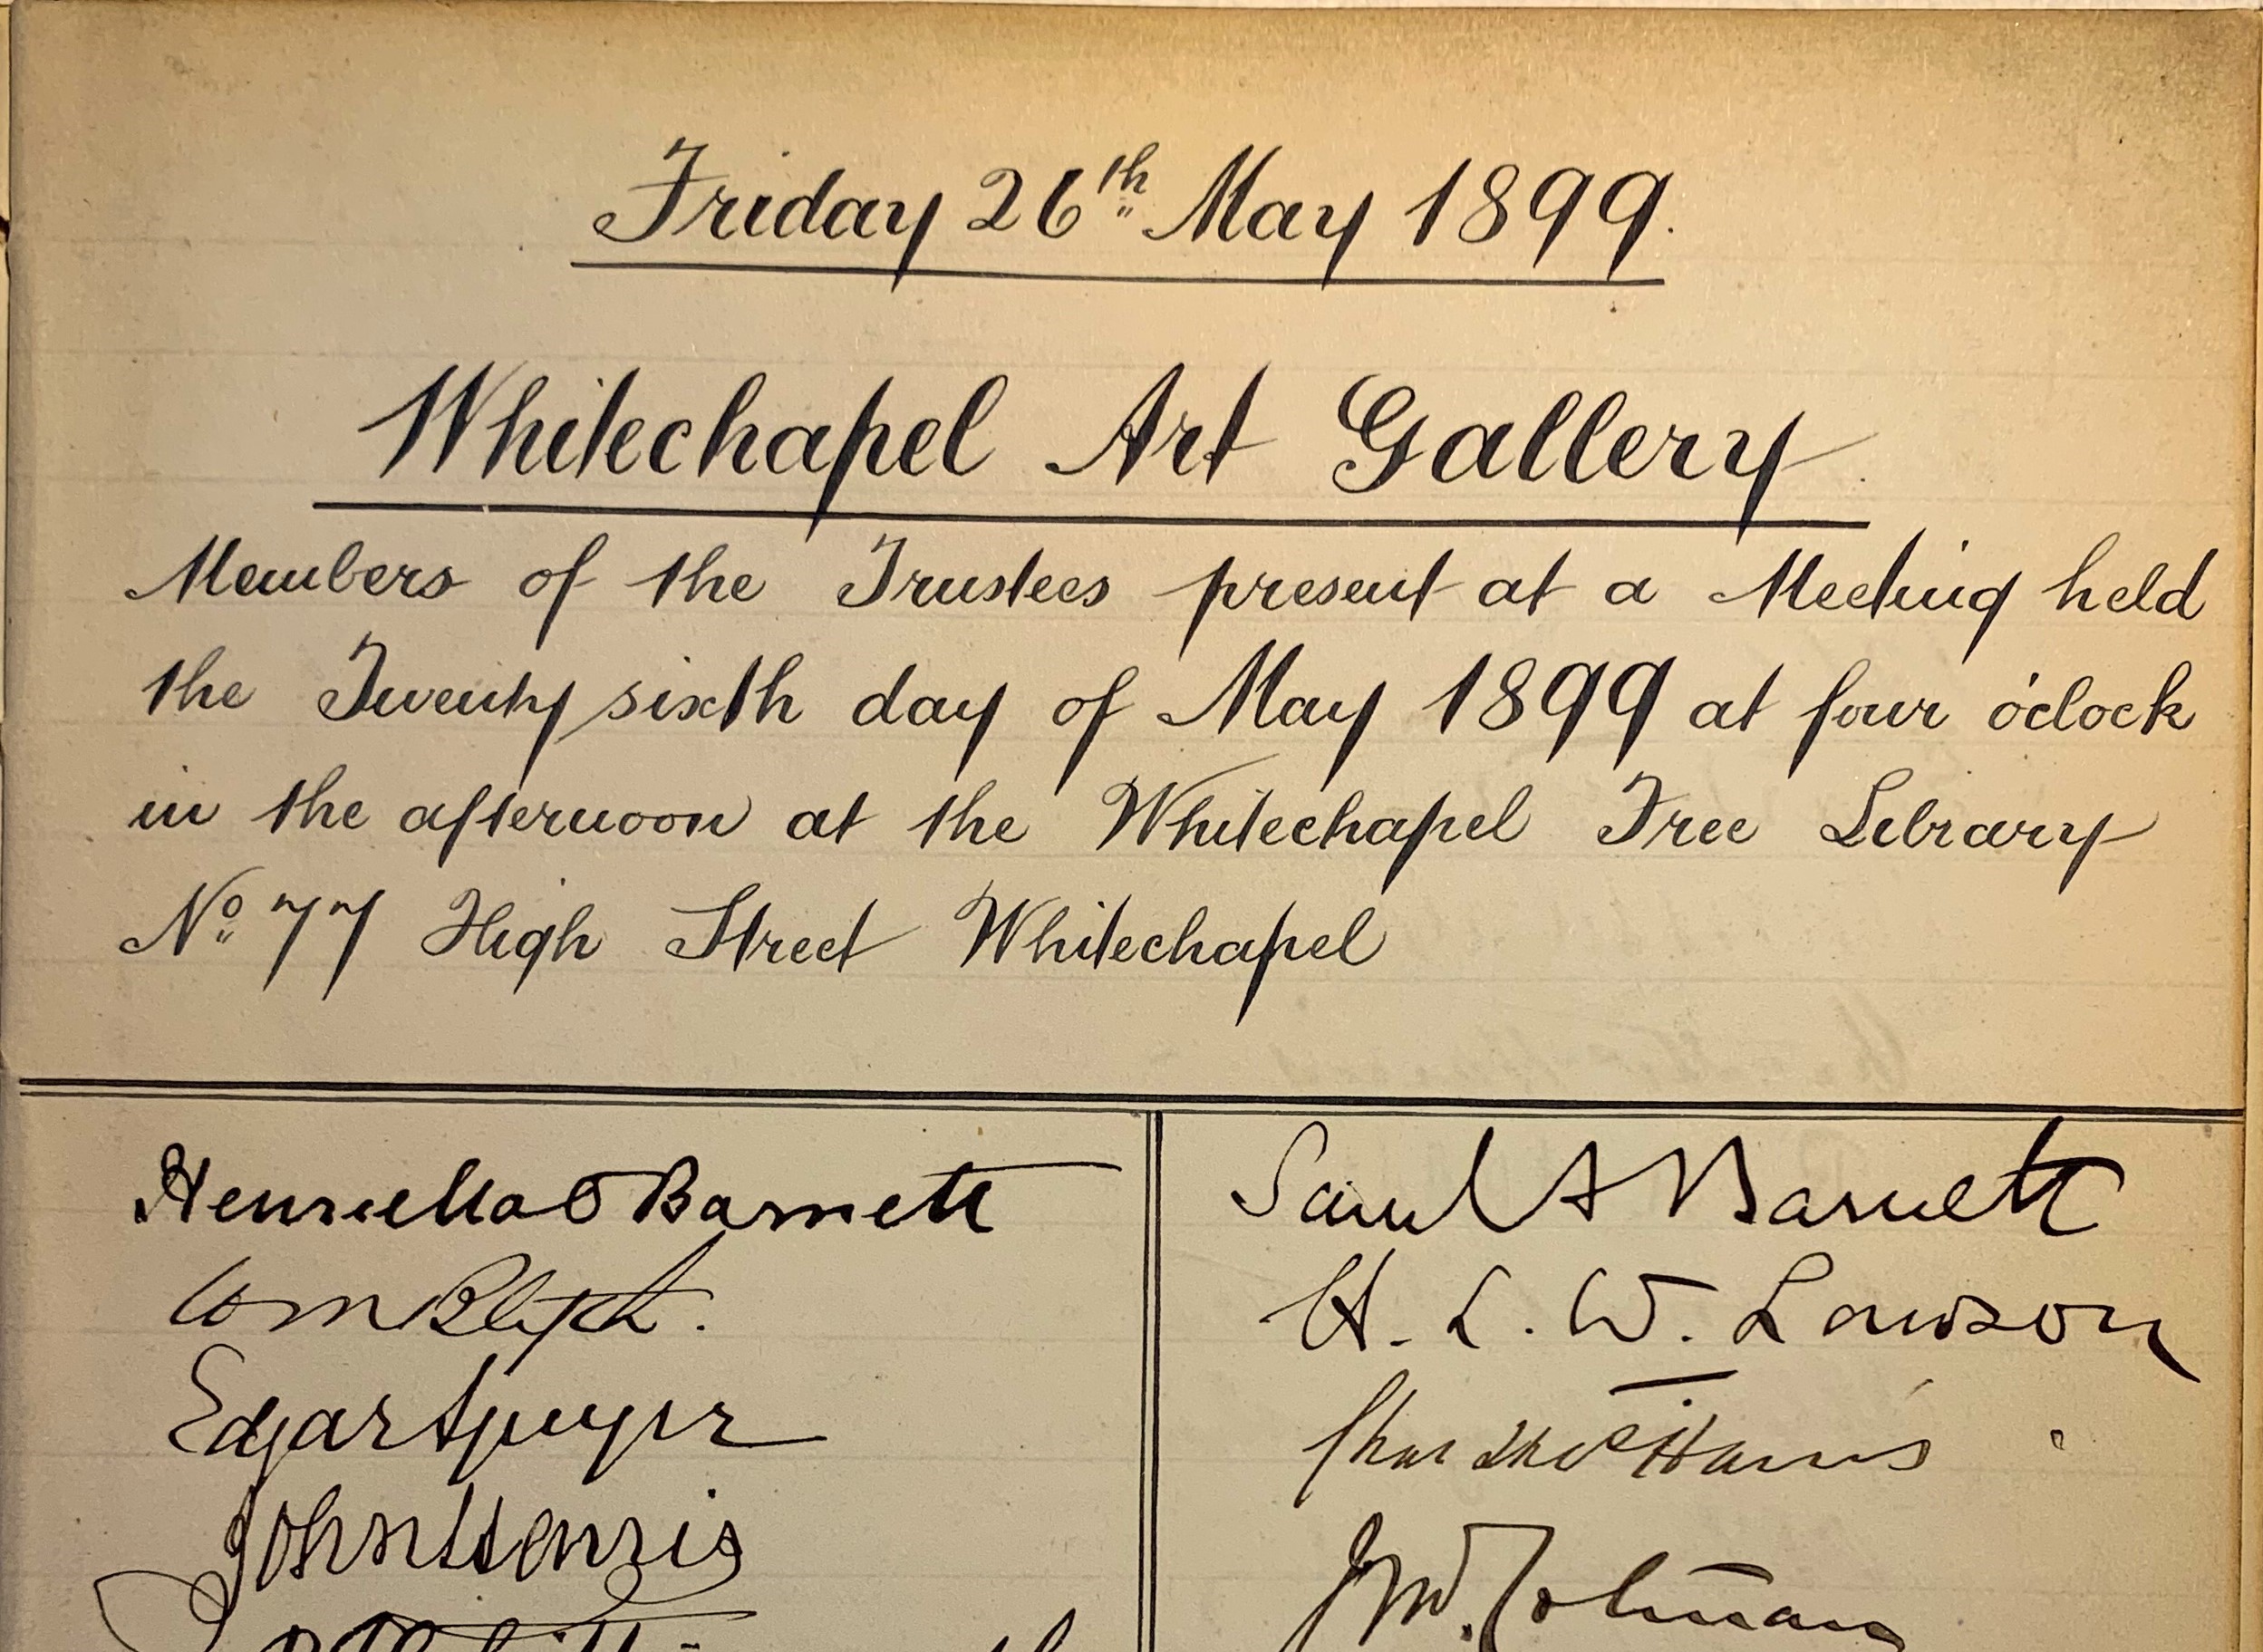 Friday 26th May 1899.
Whitechapel Art Gallery.
Members of the Trustees present at a Meeting held
the Twenty sixth day of May 1899 at four o'clock
in the afternoon at the Whitechapel Free Library
No 77 High Street Whitechapel
Henrietta O Barnett
Saml A Barnett
Wm
H. L. W. Lawson
Edgar Speyer
Harris
John Harris